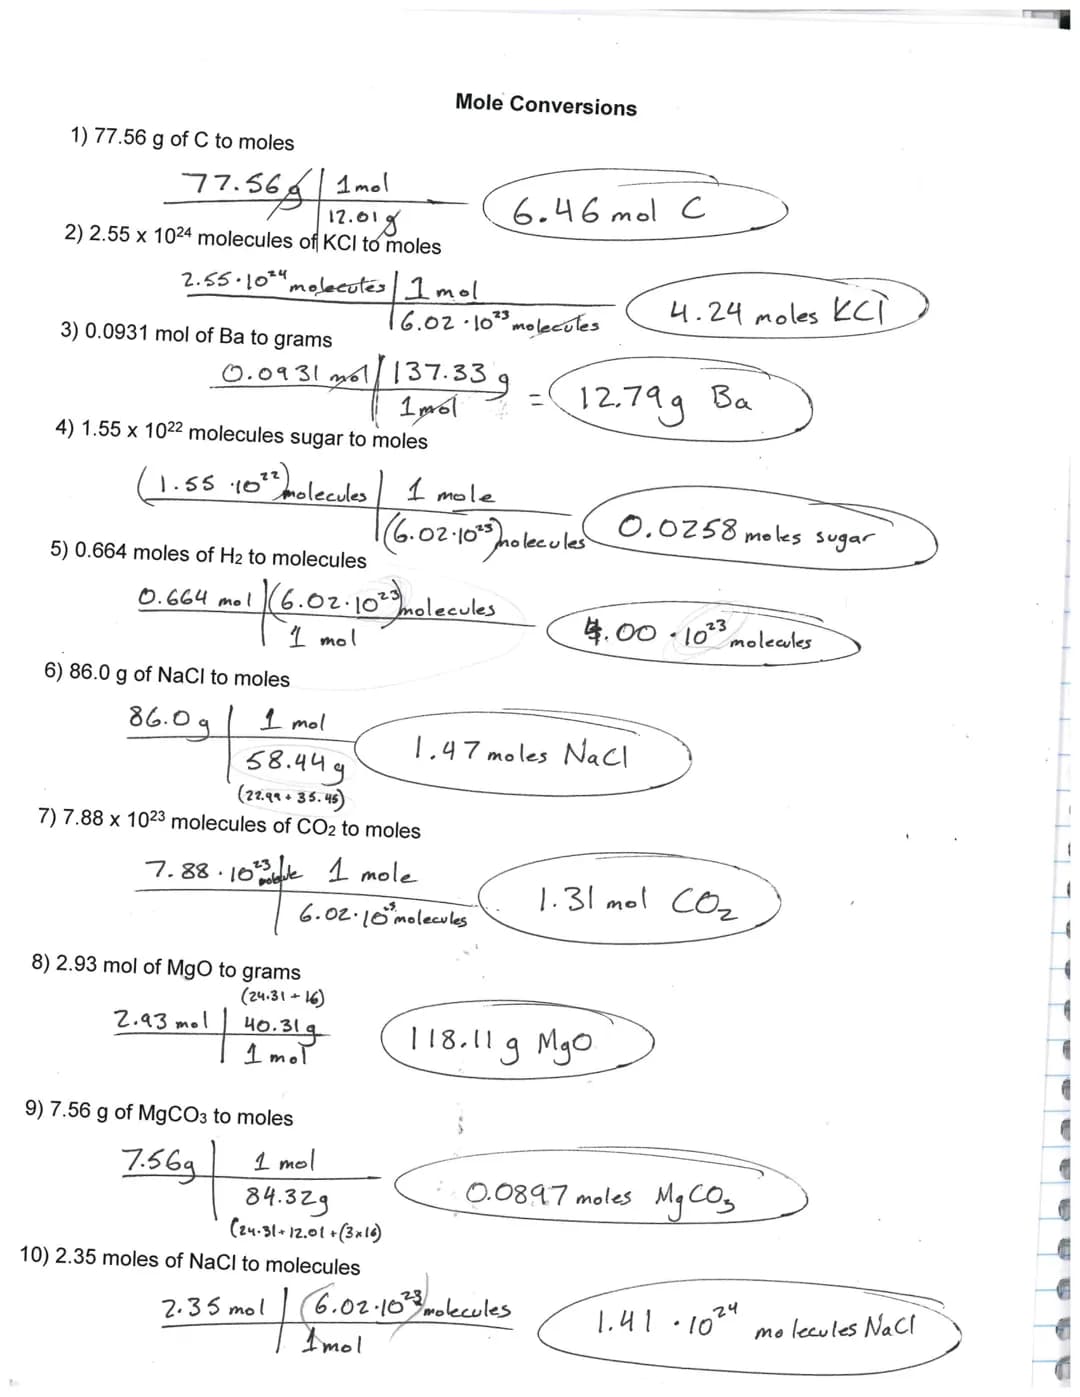 Mole Conversions
1) 77.56 g of C to moles
77.56 g | 1 mol
12.01 g
6.46 mol C
2) 2.55 x 10²⁴ molecules of KCl to moles
2.55 · 10²⁴ molecules | 1 mol
6.02 · 10²³ molecules
4.24 moles KCl
3) 0.0931 mol of Ba to grams
0.0931 mol | 137.33 g
1 mol
= 12.79 g Ba
4) 1.55 x 10²² molecules sugar to moles
(1.55 · 10²²) molecules | 1 mole
(6.02 · 10²³) molecules
0.0258 moles sugar
5) 0.664 moles of H₂ to molecules
0.664 mol | (6.02 · 10²³) molecules
1 mol
4.00 · 10²³ molecules
6) 86.0 g of NaCl to moles
86.0 g | 1 mol
58.44 g
(22.99 + 35.45)
1.47 moles NaCl
7) 7.88 x 10²³ molecules of CO₂ to moles
7.88 · 10²³ 1 mole
6.02 · 10²³ molecules
1.31 mol CO₂
8) 2.93 mol of MgO to grams
(24.31 + 16)
2.93 mol | 40.31 g
1 mol
118.11 g MgO
9) 7.56 g of MgCO₃ to moles
7.56g | 1 mol
84.32g
(24.31 + 12.01 + (3x16)
0.0897 moles MgCO₃
10) 2.35 moles of NaCl to molecules
2.35 mol | (6.02 · 10²³) molecules
1 mol
1.41 · 10²⁴ molecules NaCl